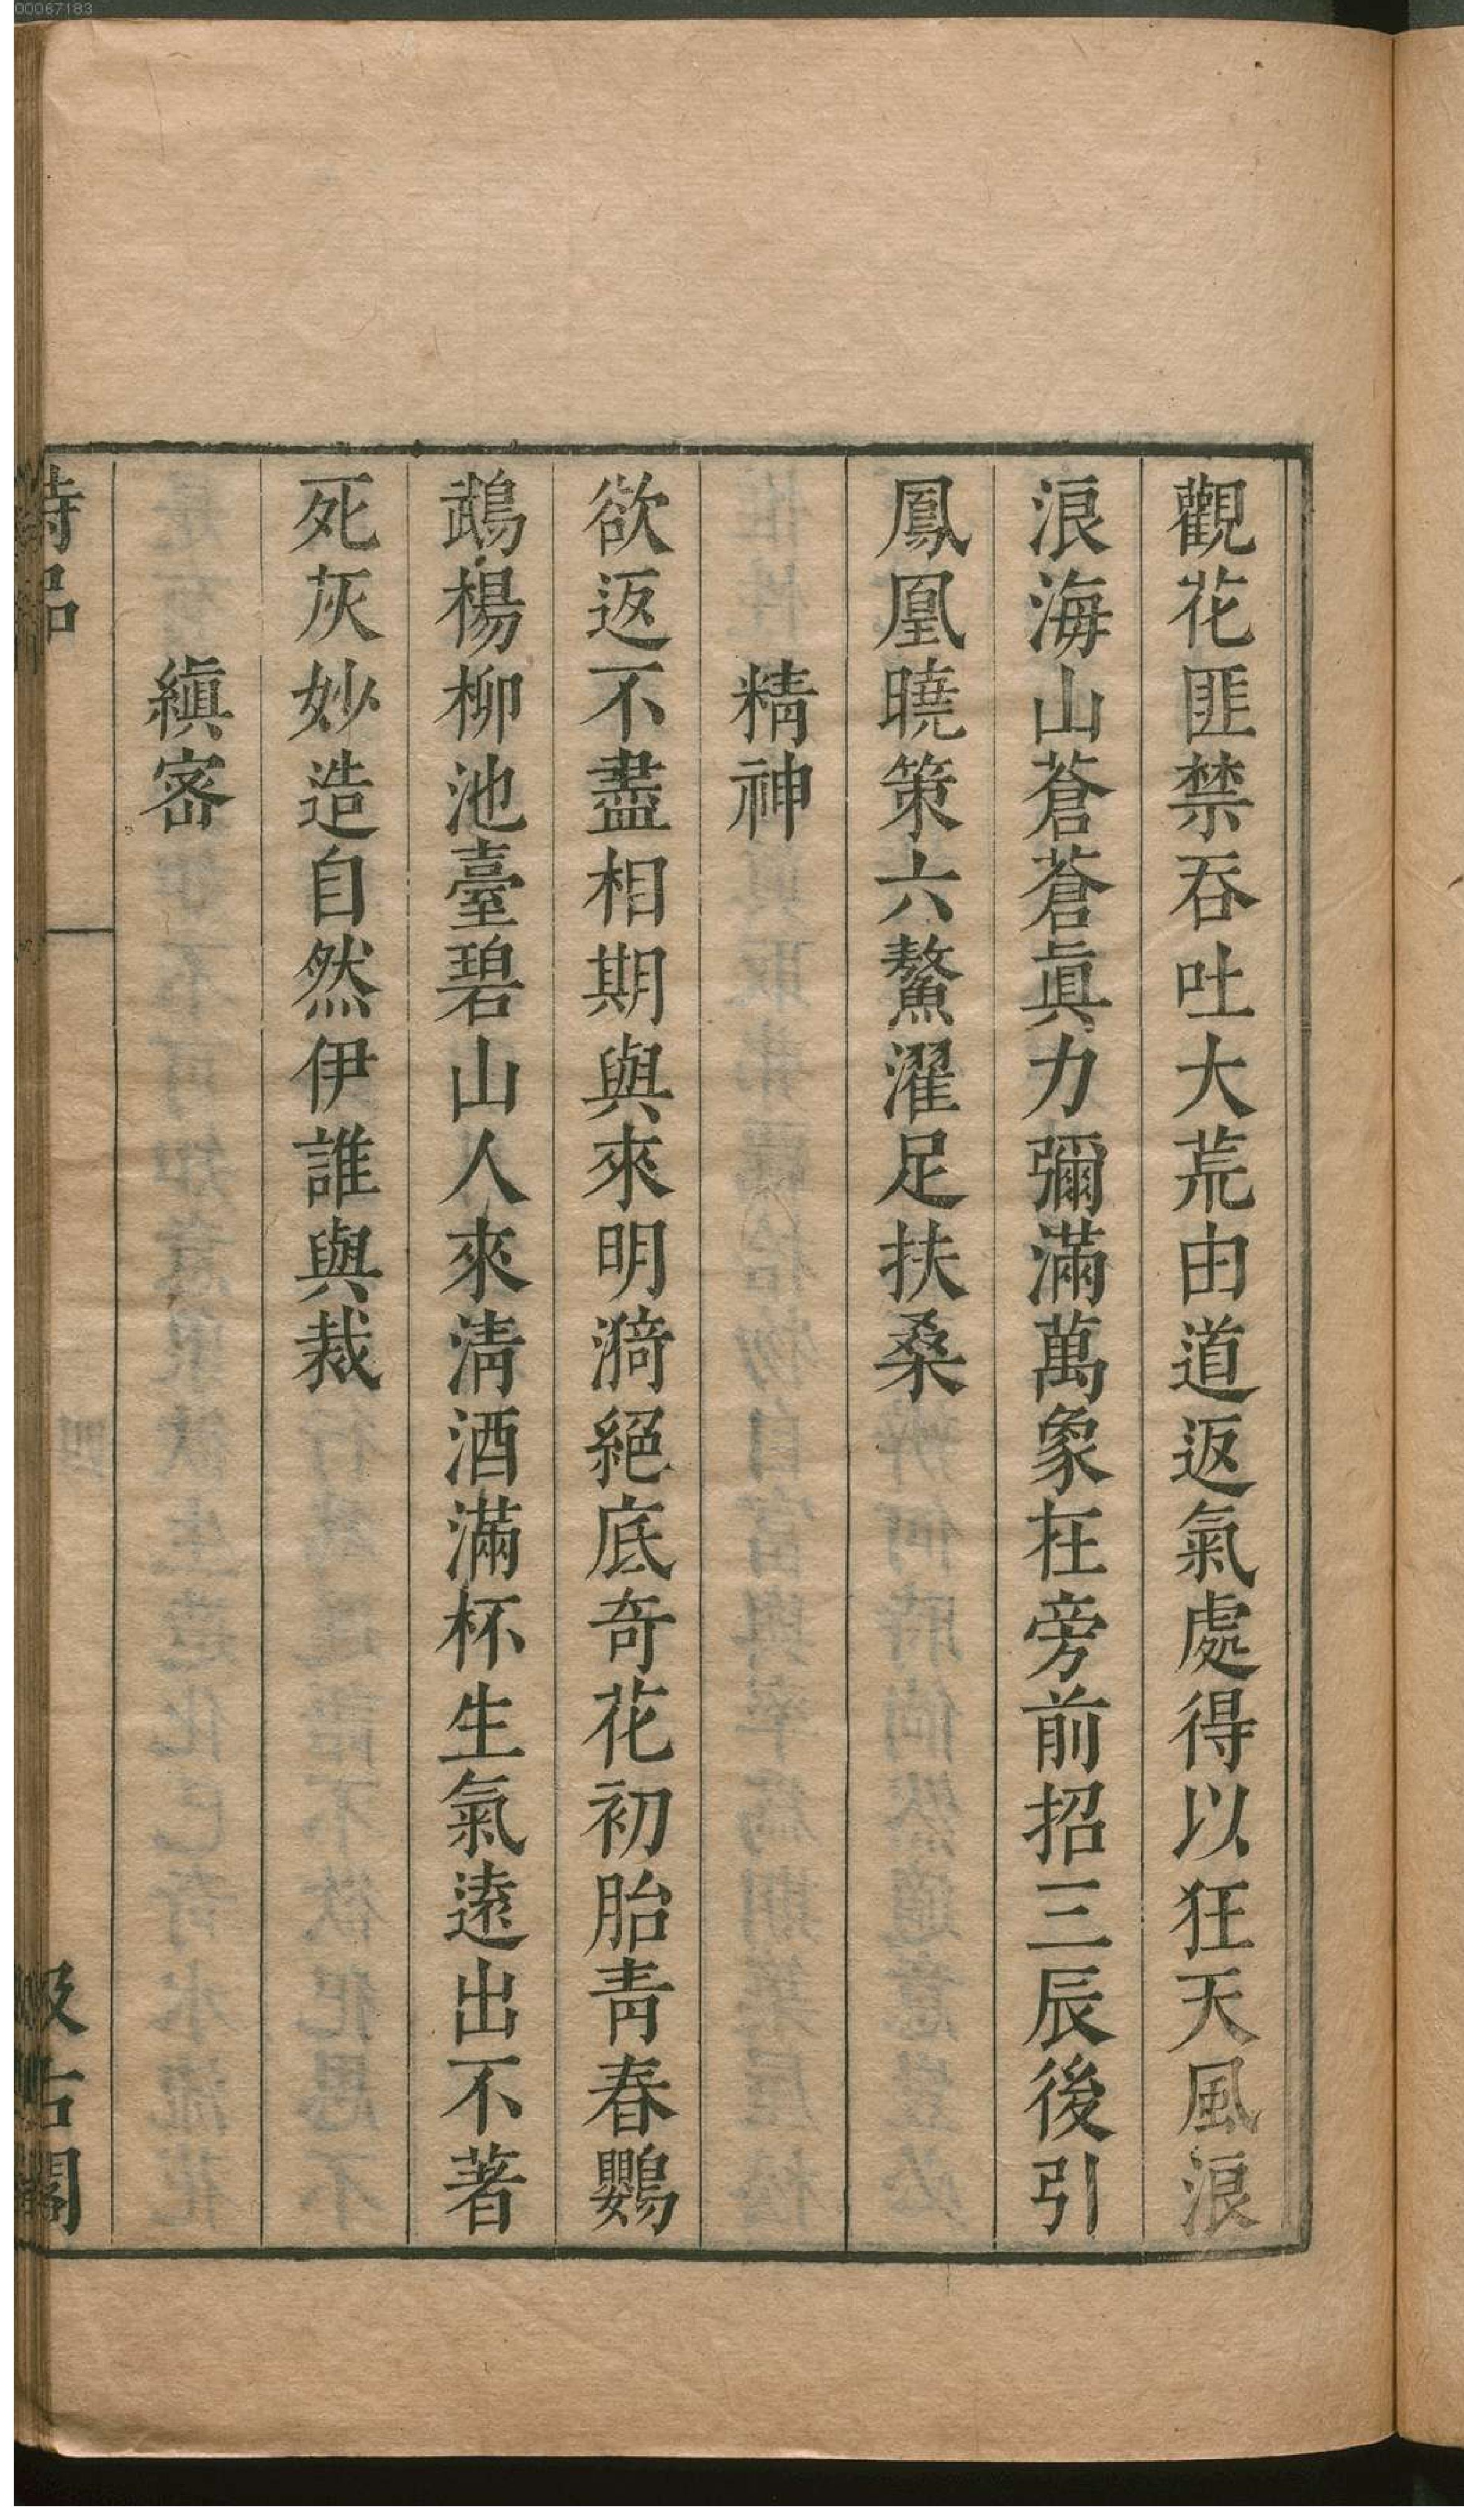 觀花匪禁吞吐大荒由道返氣處得以狂天風浪
浪海山蒼蒼眞力彌滿萬象在旁前招三辰後引
鳳凰曉策六鰲濯足扶桑
精神
欲返不盡相期與來明漪絕底奇花初胎青春鸚
鵡楊柳池臺碧山人來淸酒滿杯生氣遠出不著
死灰妙造自然伊誰與裁
縝密
詩品
汲古閣
00067183